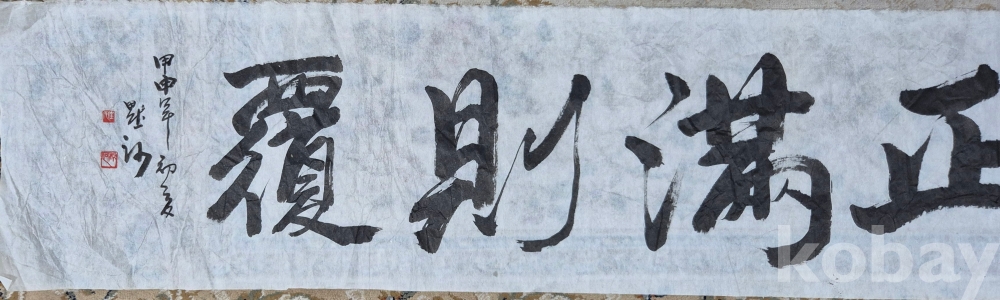 正滿則覆
甲申年 初夏
墨沙
kobay